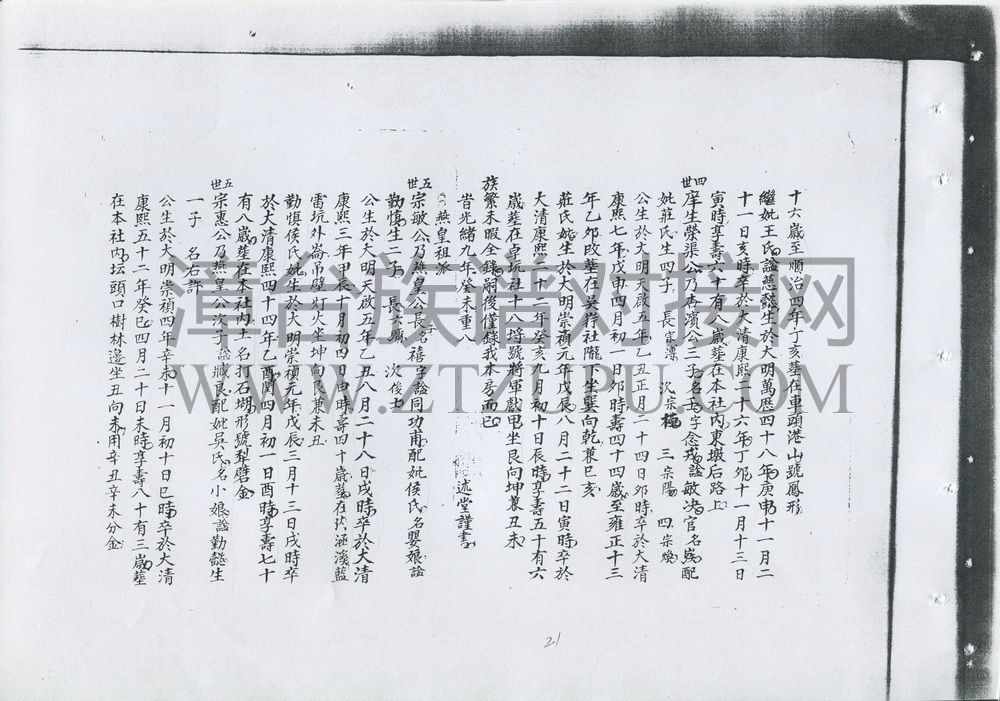 十六歲至順治四年丁亥葬在車頭港山號鳳形
繼妣王氏謚慈懿生於大明萬歷四十八年庚申十一月二
十一日亥時卒於大清康熙二十六年丁卯十一月十三日
寅時享壽六十有八歲葬在本社內東墩后路上
四世 庠生榮渠公乃杏濱公三子名 字念戎謚敏决官名 配
妣莊氏生四子 長宗 次宗 三宗陽 四宗煥
公生於大明天啟五年乙丑正月二十四日卯時卒於大清
康熙七年戊申四月初一日卯時壽四十四歲至雍正十三
年乙卯改葬在吳 社隴下坐巽向乾兼巳亥
莊氏妣生於大明崇禎元年戊辰八月二十二日寅時卒於
大清康熙二十二年癸亥九月初十日辰時享壽五十有六
歲葬在卓坑社十八 號將軍獻甲坐艮向坤兼丑未
族繁未暇全錄嗣後僅錄我本房而已
旹光緒九年癸未重八 述堂謹書
燕皇祖派
五世 宗敏公乃燕皇公長子名禧字 謚同功甫配妣侯氏名嬰娘謚
勤慎生二子 長 次俊
公生於大明天啟五年乙丑八月二十八日戌時卒於大清
康熙三年甲辰十月初四日申時壽四十歲葬在 溪藍
雷坑外崙吊壁灯火坐坤向艮兼未丑
勤慎侯氏妣生於大明崇禎元年戊辰三月十三日戌時卒
於大清康熙四十四年乙酉閏四月初一日酉時享壽七十
有八歲葬在本社內土名打石湖形號犁壁金
五世 宗惠公乃燕皇公次子謚臧良配妣吳氏名小娘謚勤懿生
一子 名右許
公生於大明崇禎四年辛未十一月初十日巳時卒於大清
康熙五十二年癸巳四月二十日未時享壽八十有三歲葬
在本社內坛頭口樹林邊坐丑向未用辛丑辛未分金
21
漳台族譜对接网
WWW.ZTZUPU.COM